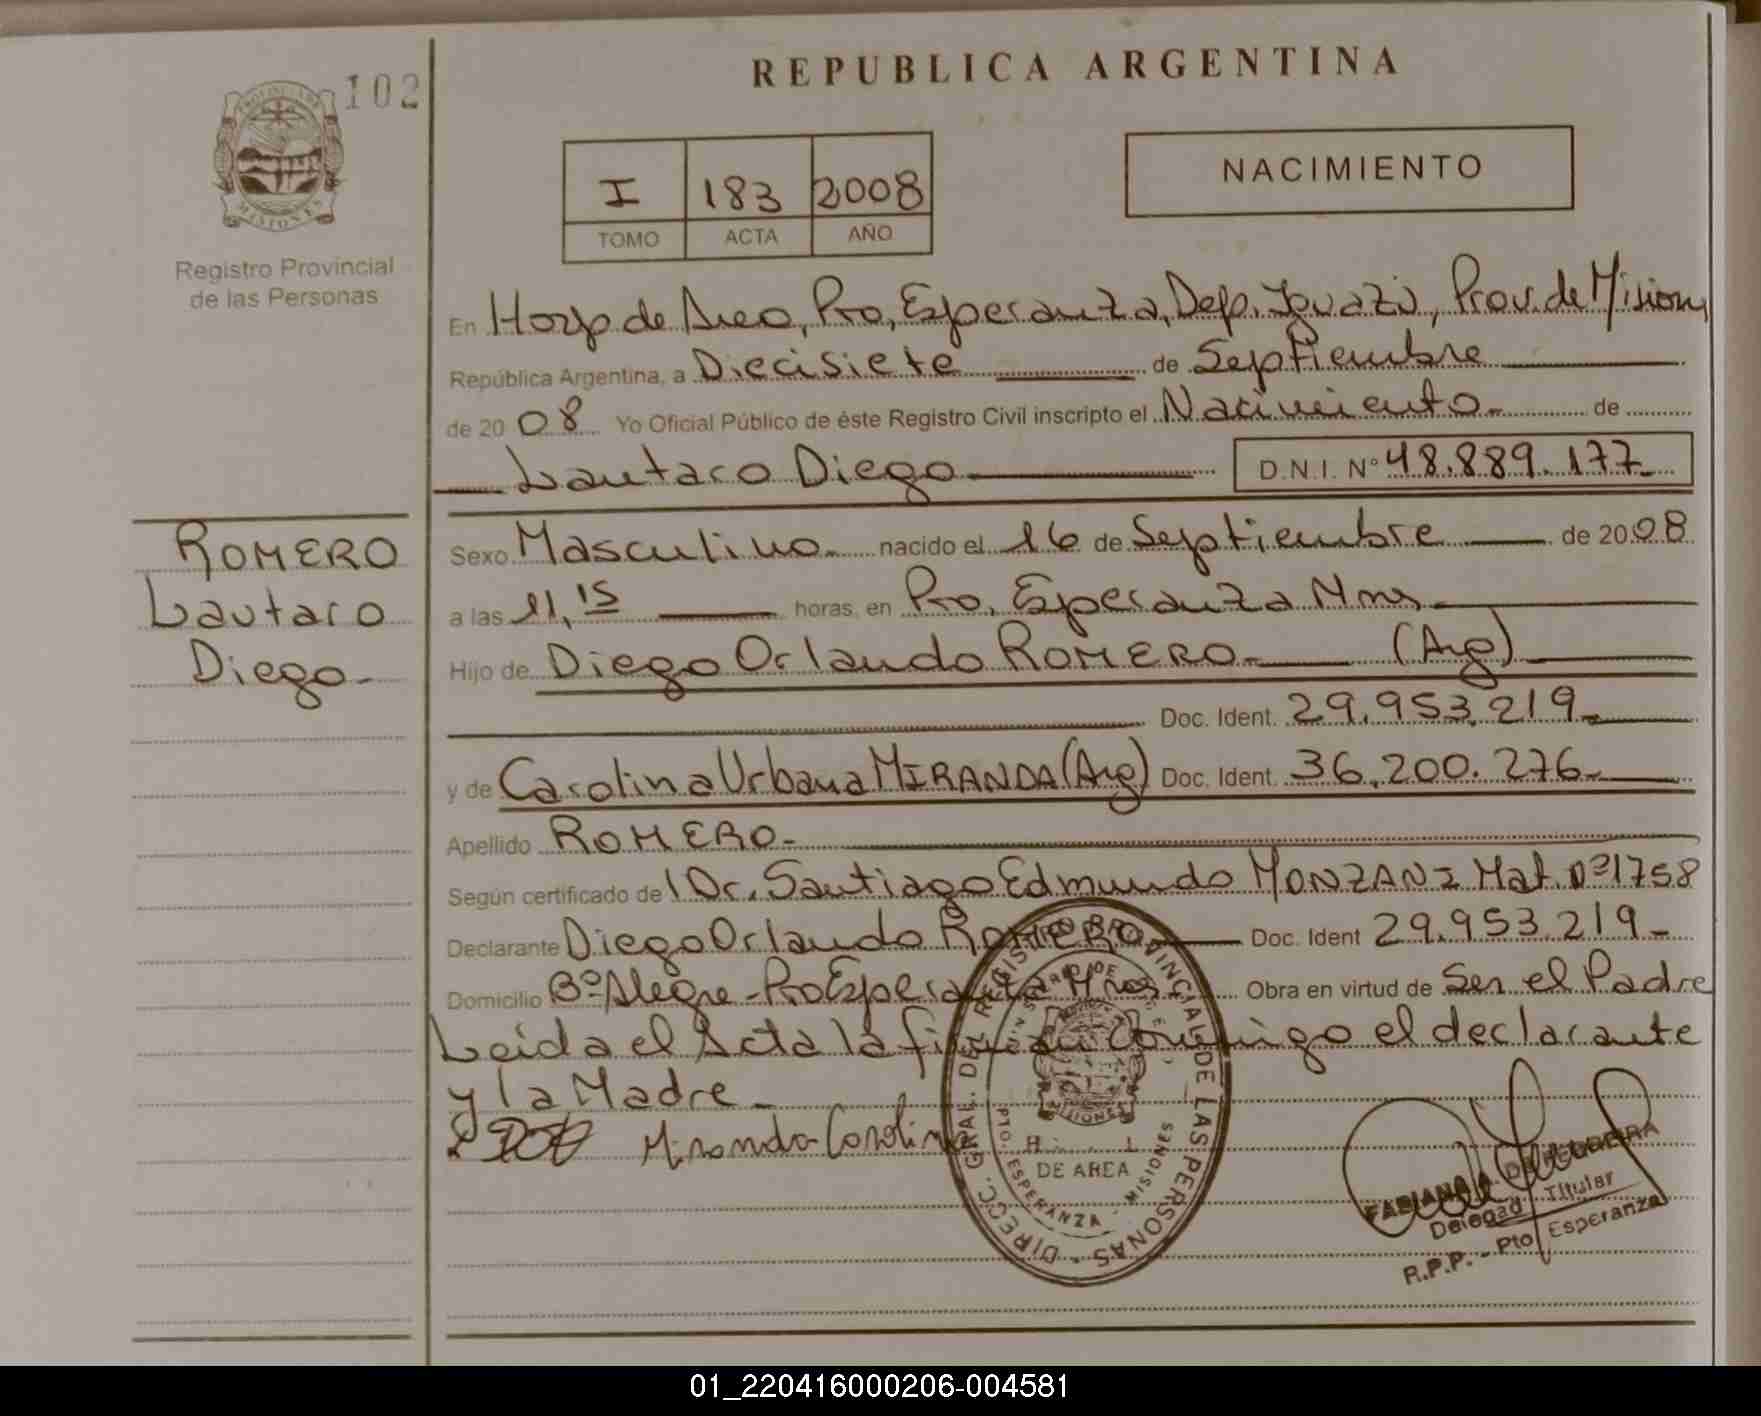 REPUBLICA ARGENTINA
102
PROVINCIA DE
MISIONES
Registro Provincial
de las Personas
I 183 2008
TOMO ACTA AÑO
NACIMIENTO
En Hosp de Area, Pto, Esperanza, Dep. Iguazú, Prov. de Misiones
República Argentina, a Diecisiete de Septiembre
de 2008 Yo Oficial Público de éste Registro Civil inscripto el Nacimiento de
Lautaro Diego D.N.I. Nº 48.889.177
ROMERO
Lautaro
Diego
Sexo Masculino nacido el 16 de Septiembre de 2008
a las 11,15 horas, en Pto. Esperanza Mnes
Hijo de Diego Orlando ROMERO (Arg)
Doc. Ident. 29.953.219
y de Carolina Urbana MIRANDA (Arg) Doc. Ident. 36.200.276
Apellido ROMERO
Según certificado de l Dr. Santiago Edmundo MONZANI Mat. nº 1758
Declarante Diego Orlando ROMERO Doc. Ident 29.953.219
Domicilio Bº Alegre - Pto Esperanza Mnes Obra en virtud de Ser el Padre
Leida el Acta la firman Conmigo el declarante
y la Madre
Miranda Carolina
DIREC. GRAL. DEL REGISTRO PROVINCIAL DE LAS PERSONAS
MISIONES
DE AREA
PTO. ESPERANZA - MISIONES
FABIANA DE FERREIRA
Delegad Titular
R.P.P. - Pto Esperanza
01_220416000206-004581